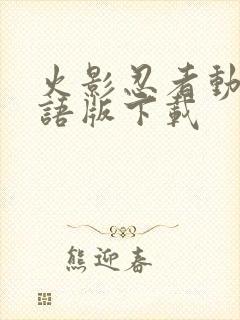 火影忍者動
語版下載
熊迎春